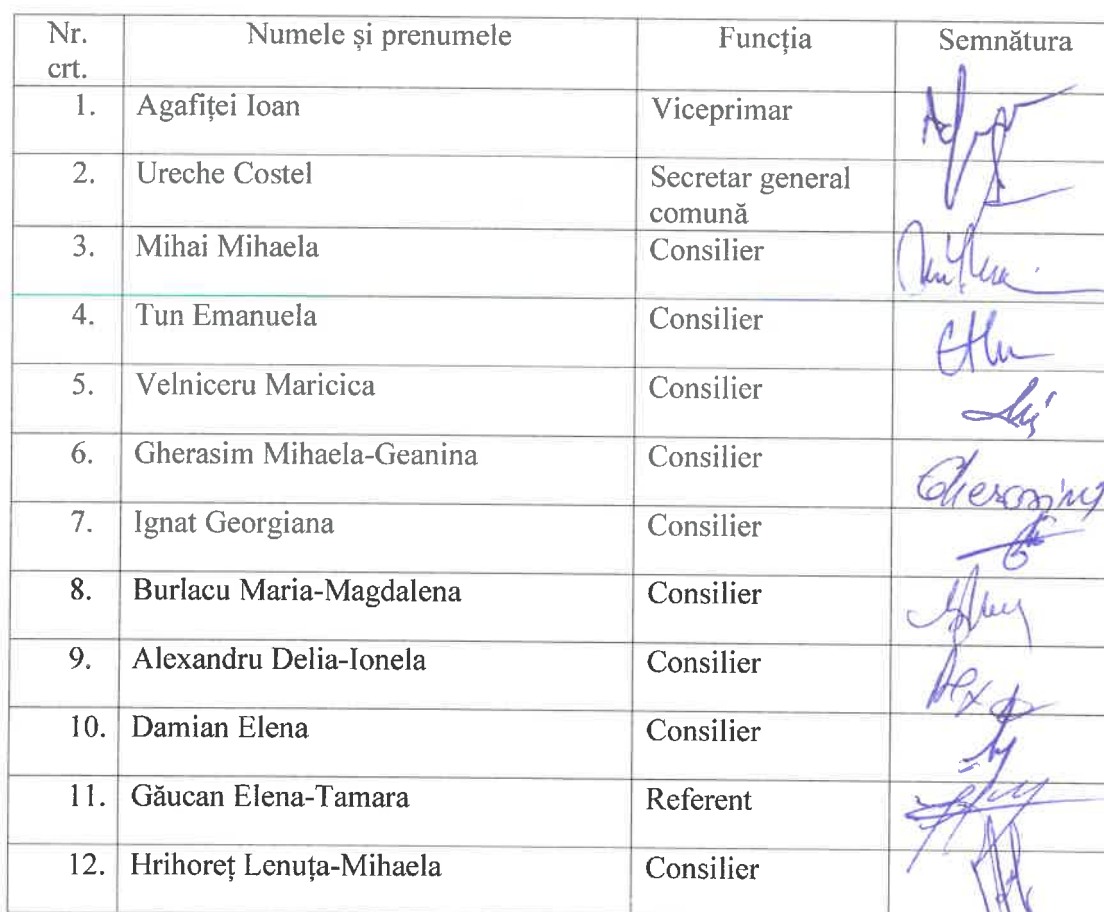 Nr. crt. Numele și prenumele Funcția Semnătura
1. Agafiței Ioan Viceprimar
2. Ureche Costel Secretar general comună
3. Mihai Mihaela Consilier
4. Tun Emanuela Consilier
5. Velniceru Maricica Consilier
6. Gherasim Mihaela-Geanina Consilier Gherasim
7. Ignat Georgiana Consilier
8. Burlacu Maria-Magdalena Consilier
9. Alexandru Delia-Ionela Consilier
10. Damian Elena Consilier
11. Găucan Elena-Tamara Referent
12. Hrihoreț Lenuța-Mihaela Consilier